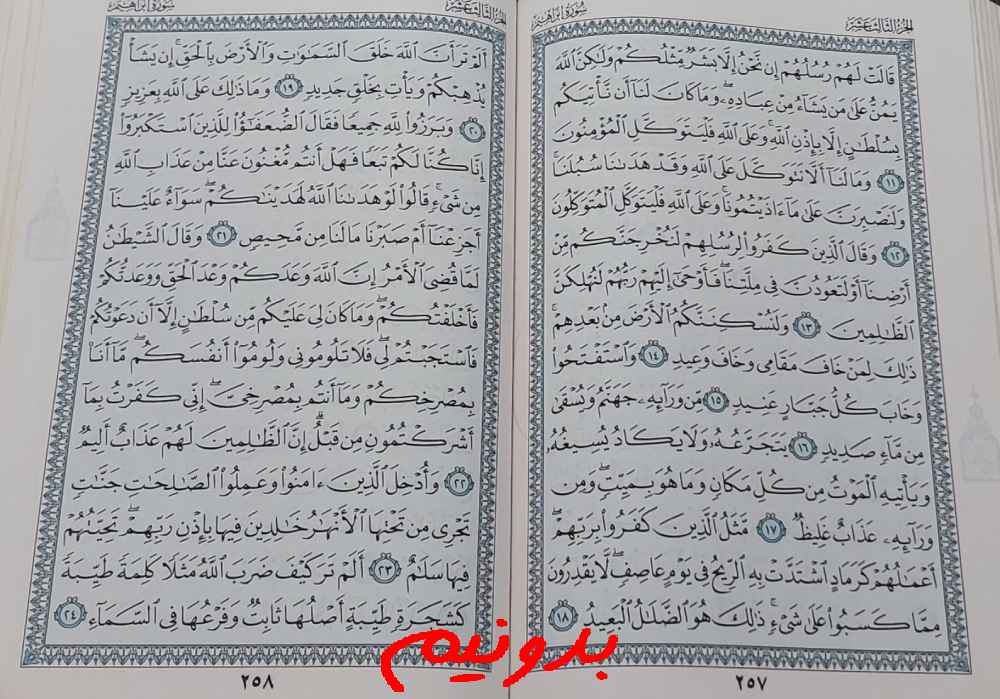 الجزء الثالث عشر
سورة إبراهيم
قَالَتْ لَهُمْ رُسُلُهُمْ إِن نَّحْنُ إِلَّا بَشَرٌ مِّثْلُكُمْ وَلَٰكِنَّ ٱللَّهَ
يَمُنُّ عَلَىٰ مَن يَشَآءُ مِنْ عِبَادِهِۦ ۖ وَمَا كَانَ لَنَآ أَن نَّأْتِيَكُم
بِسُلْطَٰنٍ إِلَّا بِإِذْنِ ٱللَّهِ ۚ وَعَلَى ٱللَّهِ فَلْيَتَوَكَّلِ ٱلْمُؤْمِنُونَ
﴿١١﴾ وَمَا لَنَآ أَلَّا نَتَوَكَّلَ عَلَى ٱللَّهِ وَقَدْ هَدَىٰنَا سُبُلَنَا ۚ
وَلَنَصْبِرَنَّ عَلَىٰ مَآ ءَاذَيْتُمُونَا ۚ وَعَلَى ٱللَّهِ فَلْيَتَوَكَّلِ ٱلْمُتَوَكِّلُونَ
﴿١٢﴾ وَقَالَ ٱلَّذِينَ كَفَرُوا۟ لِرُسُلِهِمْ لَنُخْرِجَنَّكُم مِّنْ
أَرْضِنَآ أَوْ لَتَعُودُنَّ فِى مِلَّتِنَا ۖ فَأَوْحَىٰٓ إِلَيْهِمْ رَبُّهُمْ لَنُهْلِكَنَّ
ٱلظَّٰلِمِينَ ﴿١٣﴾ وَلَنُسْكِنَنَّكُمُ ٱلْأَرْضَ مِنۢ بَعْدِهِمْ ۚ
ذَٰلِكَ لِمَنْ خَافَ مَقَامِى وَخَافَ وَعِيدِ ﴿١٤﴾ وَٱسْتَفْتَحُوا۟
وَخَابَ كُلُّ جَبَّارٍ عَنِيدٍ ﴿١٥﴾ مِّن وَرَآئِهِۦ جَهَنَّمُ وَيُسْقَىٰ
مِن مَّآءٍ صَدِيدٍ ﴿١٦﴾ يَتَجَرَّعُهُۥ وَلَا يَكَادُ يُسِيغُهُۥ
وَيَأْتِيهِ ٱلْمَوْتُ مِن كُلِّ مَكَانٍ وَمَا هُوَ بِمَيِّتٍ ۖ وَمِن
وَرَآئِهِۦ عَذَابٌ غَلِيظٌ ﴿١٧﴾ مَّثَلُ ٱلَّذِينَ كَفَرُوا۟ بِرَبِّهِمْ ۖ
أَعْمَٰلُهُمْ كَرَمَادٍ ٱشْتَدَّتْ بِهِ ٱلرِّيحُ فِى يَوْمٍ عَاصِفٍ ۖ لَّا يَقْدِرُونَ
مِمَّا كَسَبُوا۟ عَلَىٰ شَىْءٍ ۚ ذَٰلِكَ هُوَ ٱلضَّلَٰلُ ٱلْبَعِيدُ ﴿١٨﴾
٢٥٧
الجزء الثالث عشر
سورة إبراهيم
أَلَمْ تَرَ أَنَّ ٱللَّهَ خَلَقَ ٱلسَّمَٰوَٰتِ وَٱلْأَرْضَ بِٱلْحَقِّ ۚ إِن يَشَأْ
يُذْهِبْكُمْ وَيَأْتِ بِخَلْقٍ جَدِيدٍ ﴿١٩﴾ وَمَا ذَٰلِكَ عَلَى ٱللَّهِ بِعَزِيزٍ
﴿٢٠﴾ وَبَرَزُوا۟ لِلَّهِ جَمِيعًا فَقَالَ ٱلضُّعَفَٰٓؤُا۟ لِلَّذِينَ ٱسْتَكْبَرُوٓا۟
إِنَّا كُنَّا لَكُمْ تَبَعًا فَهَلْ أَنتُم مُّغْنُونَ عَنَّا مِنْ عَذَابِ ٱللَّهِ
مِن شَىْءٍ ۚ قَالُوا۟ لَوْ هَدَىٰنَا ٱللَّهُ لَهَدَيْنَٰكُمْ ۖ سَوَآءٌ عَلَيْنَآ
أَجَزِعْنَآ أَمْ صَبَرْنَا مَا لَنَا مِن مَّحِيصٍ ﴿٢١﴾ وَقَالَ ٱلشَّيْطَٰنُ
لَمَّا قُضِىَ ٱلْأَمْرُ إِنَّ ٱللَّهَ وَعَدَكُمْ وَعْدَ ٱلْحَقِّ وَوَعَدتُّكُمْ
فَأَخْلَفْتُكُمْ ۖ وَمَا كَانَ لِىَ عَلَيْكُم مِّن سُلْطَٰنٍ إِلَّآ أَن دَعَوْتُكُمْ
فَٱسْتَجَبْتُمْ لِى ۖ فَلَا تَلُومُونِى وَلُومُوٓا۟ أَنفُسَكُم ۖ مَّآ أَنَا۠
بِمُصْرِخِكُمْ وَمَآ أَنتُم بِمُصْرِخِىَّ ۖ إِنِّى كَفَرْتُ بِمَآ
أَشْرَكْتُمُونِ مِن قَبْلُ ۗ إِنَّ ٱلظَّٰلِمِينَ لَهُمْ عَذَابٌ أَلِيمٌ
﴿٢٢﴾ وَأُدْخِلَ ٱلَّذِينَ ءَامَنُوا۟ وَعَمِلُوا۟ ٱلصَّٰلِحَٰتِ جَنَّٰتٍ
تَجْرِى مِن تَحْتِهَا ٱلْأَنْهَٰرُ خَٰلِدِينَ فِيهَا بِإِذْنِ رَبِّهِمْ ۖ تَحِيَّتُهُمْ
فِيهَا سَلَٰمٌ ﴿٢٣﴾ أَلَمْ تَرَ كَيْفَ ضَرَبَ ٱللَّهُ مَثَلًا كَلِمَةً طَيِّبَةً
كَشَجَرَةٍ طَيِّبَةٍ أَصْلُهَا ثَابِتٌ وَفَرْعُهَا فِى ٱلسَّمَآءِ ﴿٢٤﴾
٢٥٨
بدونیم